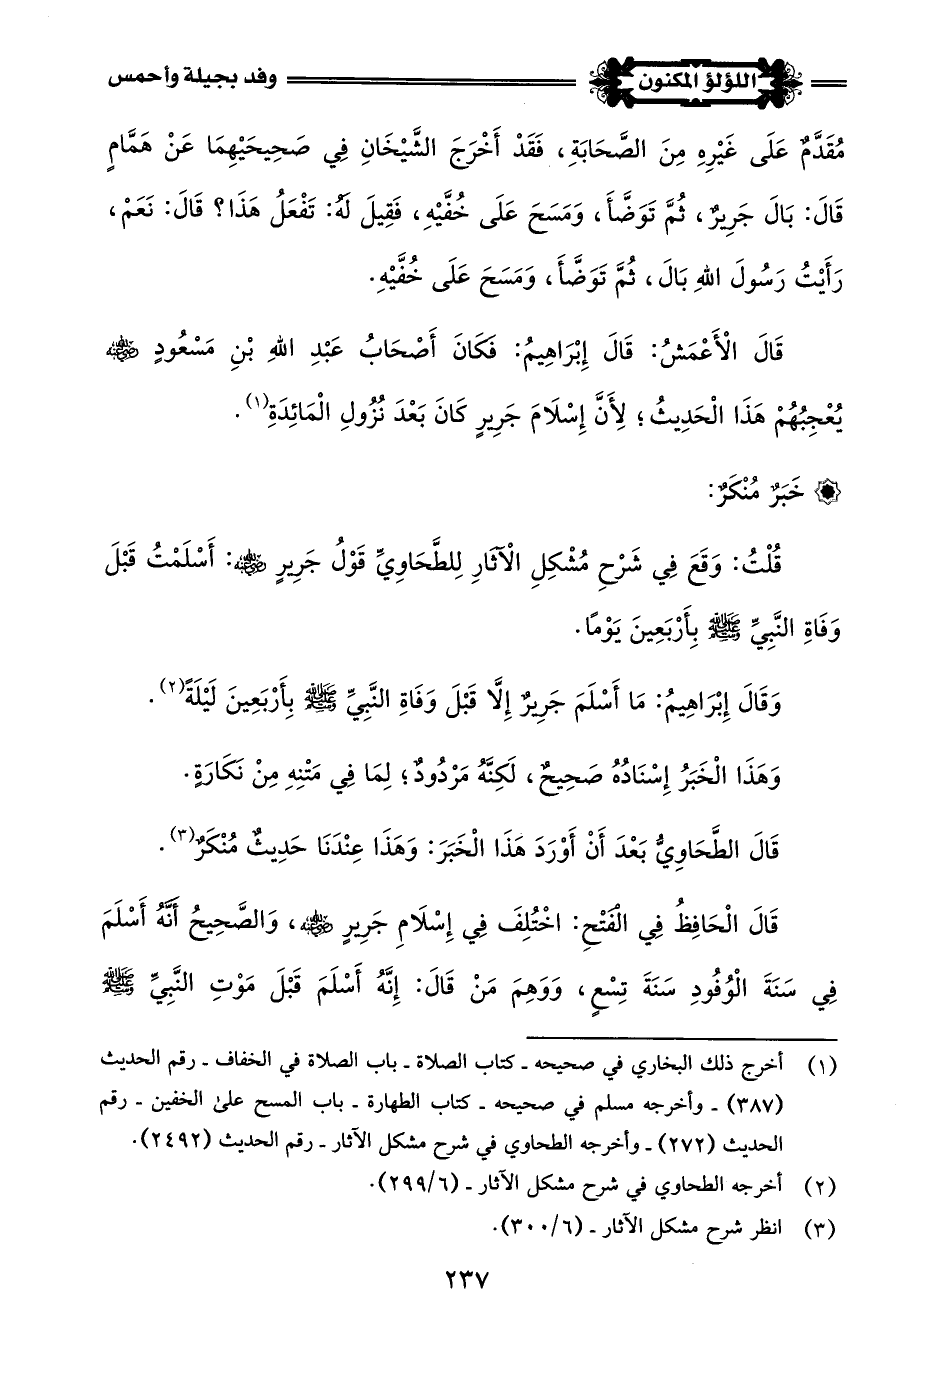 اللؤلؤ المكنون
وفد بجيلة وأحمس
مُقَدَّمٌ عَلَى غَيْرِهِ مِنَ الصَّحَابَةِ، فَقَدْ أَخْرَجَ الشَّيْخَانِ فِي صَحِيحَيْهِمَا عَنْ هَمَّامٍ
قَالَ: بَالَ جَرِيرٌ، ثُمَّ تَوَضَّأَ، وَمَسَحَ عَلَى خُفَّيْهِ، فَقِيلَ لَهُ: تَفْعَلُ هَذَا؟ قَالَ: نَعَمْ،
رَأَيْتُ رَسُولَ اللهِ بَالَ، ثُمَّ تَوَضَّأَ، وَمَسَحَ عَلَى خُفَّيْهِ.
قَالَ الْأَعْمَشُ: قَالَ إِبْرَاهِيمُ: فَكَانَ أَصْحَابُ عَبْدِ اللهِ بْنِ مَسْعُودٍ رضي الله عنه
يُعْجِبُهُمْ هَذَا الْحَدِيثُ؛ لِأَنَّ إِسْلَامَ جَرِيرٍ كَانَ بَعْدَ نُزُولِ الْمَائِدَةِ(١).
۞ خَبَرٌ مُنْكَرٌ:
قُلْتُ: وَقَعَ فِي شَرْحِ مُشْكِلِ الْآثَارِ لِلطَّحَاوِيِّ قَوْلُ جَرِيرٍ رضي الله عنه: أَسْلَمْتُ قَبْلَ
وَفَاةِ النَّبِيِّ ﷺ بِأَرْبَعِينَ يَوْمًا.
وَقَالَ إِبْرَاهِيمُ: مَا أَسْلَمَ جَرِيرٌ إِلَّا قَبْلَ وَفَاةِ النَّبِيِّ ﷺ بِأَرْبَعِينَ لَيْلَةً(٢).
وَهَذَا الْخَبَرُ إِسْنَادُهُ صَحِيحٌ، لَكِنَّهُ مَرْدُودٌ؛ لِمَا فِي مَتْنِهِ مِنْ نَكَارَةٍ.
قَالَ الطَّحَاوِيُّ بَعْدَ أَنْ أَوْرَدَ هَذَا الْخَبَرَ: وَهَذَا عِنْدَنَا حَدِيثٌ مُنْكَرٌ(٣).
قَالَ الْحَافِظُ فِي الْفَتْحِ: اخْتُلِفَ فِي إِسْلَامِ جَرِيرٍ رضي الله عنه، وَالصَّحِيحُ أَنَّهُ أَسْلَمَ
فِي سَنَةَ الْوُفُودِ سَنَةَ تِسْعٍ، وَوَهِمَ مَنْ قَالَ: إِنَّهُ أَسْلَمَ قَبْلَ مَوْتِ النَّبِيِّ ﷺ
(١) أخرج ذلك البخاري في صحيحه ـ كتاب الصلاة ـ باب الصلاة في الخفاف ـ رقم الحديث
(٣٨٧) ـ وأخرجه مسلم في صحيحه ـ كتاب الطهارة ـ باب المسح على الخفين ـ رقم
الحديث (٢٧٢) ـ وأخرجه الطحاوي في شرح مشكل الآثار ـ رقم الحديث (٢٤٩٢).
(٢) أخرجه الطحاوي في شرح مشكل الآثار ـ (٢٩٩/٦).
(٣) انظر شرح مشكل الآثار ـ (٣٠٠/٦).
٢٣٧